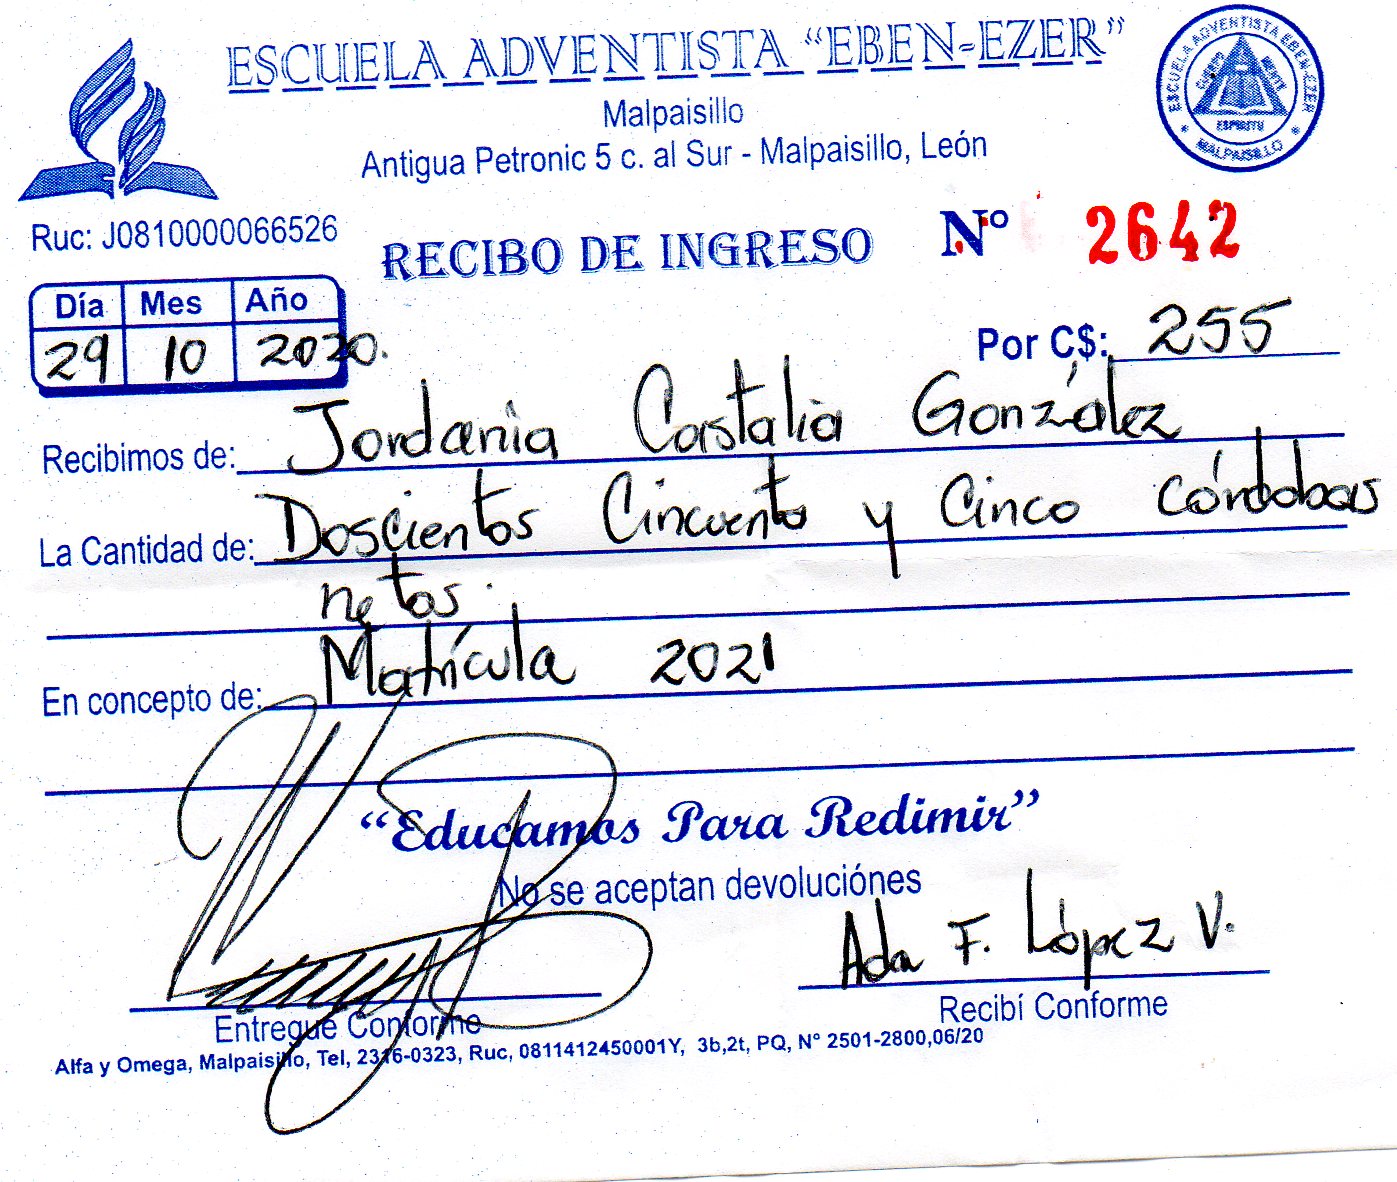 ESCUELA ADVENTISTA "EBEN-EZER"
Malpaisillo
Antigua Petronic 5 c. al Sur - Malpaisillo, León
ESCUELA ADVENTISTA EBEN-EZER
CUERPO MENTE
ESPIRITU
* MALPAISILLO *
Ruc: J0810000066526
RECIBO DE INGRESO
Nº 2642
Día Mes Año
29 10 2020.
Por C$: 255
Recibimos de: Jordania Castalia González
La Cantidad de: Doscientos Cincuenta y Cinco córdobas
netos.
En concepto de: Matrícula 2021
"Educamos Para Redimir"
No se aceptan devoluciónes
Ada F. López V.
Entregue Conforme
Recibí Conforme
Alfa y Omega, Malpaisillo, Tel, 2316-0323, Ruc, 0811412450001Y, 3b,2t, PQ, Nº 2501-2800,06/20